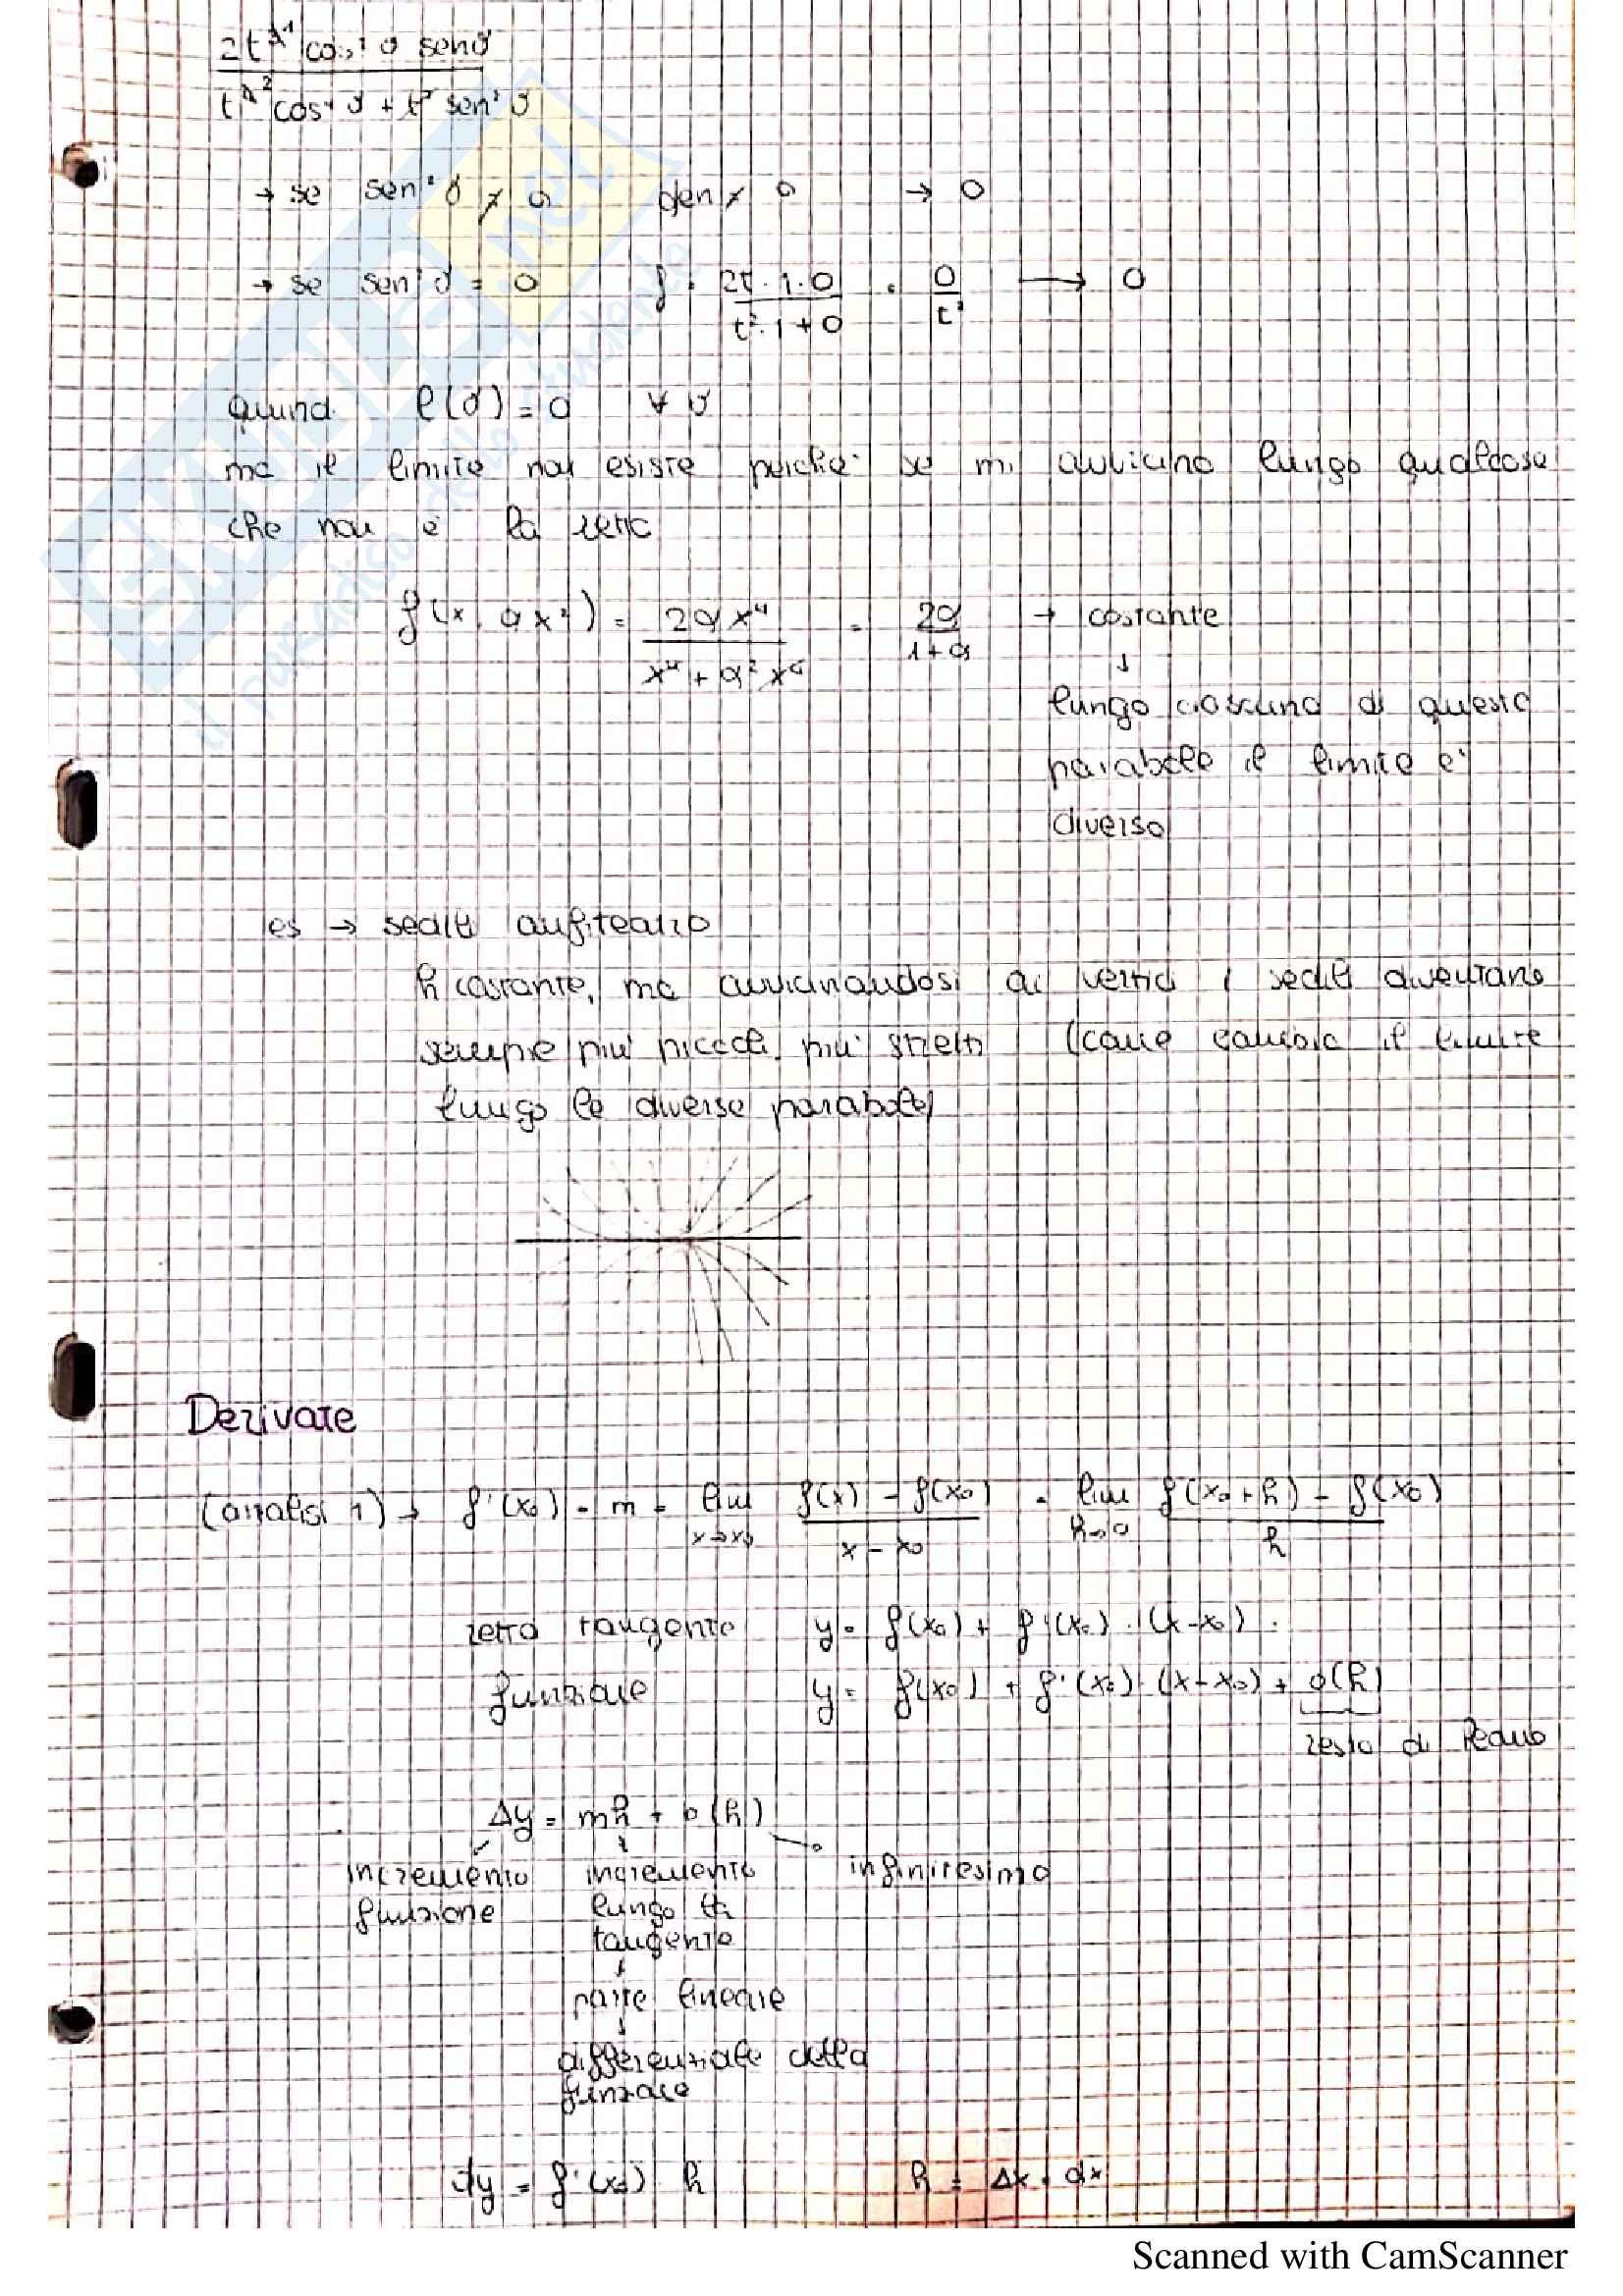 2t cos² ϑ sen ϑ
t² cos⁴ ϑ + sen² ϑ
→ se sen² ϑ ≠ 0 den ≠ 0 → 0
→ se sen² ϑ = 0 f = 2t · 1 · 0 / t² · 1 + 0 = 0 / t² → 0
quindi ℓ(ϑ) = 0 ∀ ϑ
ma il limite non esiste perché se mi avvicino lungo qualcosa
che non è la retta
f(x, αx²) = 2αx⁴ / x⁴ + α²x⁴ = 2α / 1 + α → costante
↓
lungo ciascuna di queste
parabole il limite è
diverso
es → sedili anfiteatro
h costante, ma avvicinandosi ai vertici i sedili diventano
sempre più piccoli, più stretti (come cambia il limite
lungo le diverse parabole)
Derivate
(analisi 1) → f'(x₀) = m = lim x→x₀ f(x) - f(x₀) / x - x₀ = lim h→0 f(x₀+h) - f(x₀) / h
retta tangente y = f(x₀) + f'(x₀) · (x-x₀)
funzione y = f(x₀) + f'(x₀) · (x-x₀) + o(h)
resto di Peano
Δy = mh + o(h)
incremento incremento infinitesimo
funzione lungo la
tangente
↓
parte lineare
↓
differenziale della
funzione
dy = f'(x₀) h h = Δx = dx
SKUOLA.net
il paradiso dello studente
Scanned with CamScanner